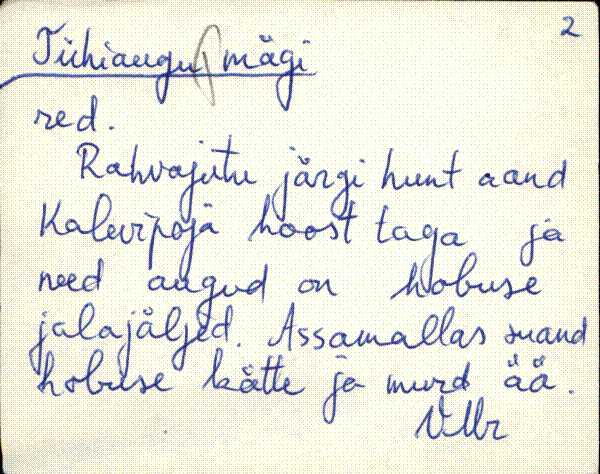 2
Tühiaugu mägi
red.
Rahvajutu järgi hunt aand
Kalevipoja hoost taga ja
need augud on hobuse
jalajäljed. Assamallas suand
hobuse kätte ja murd ää.
VMr